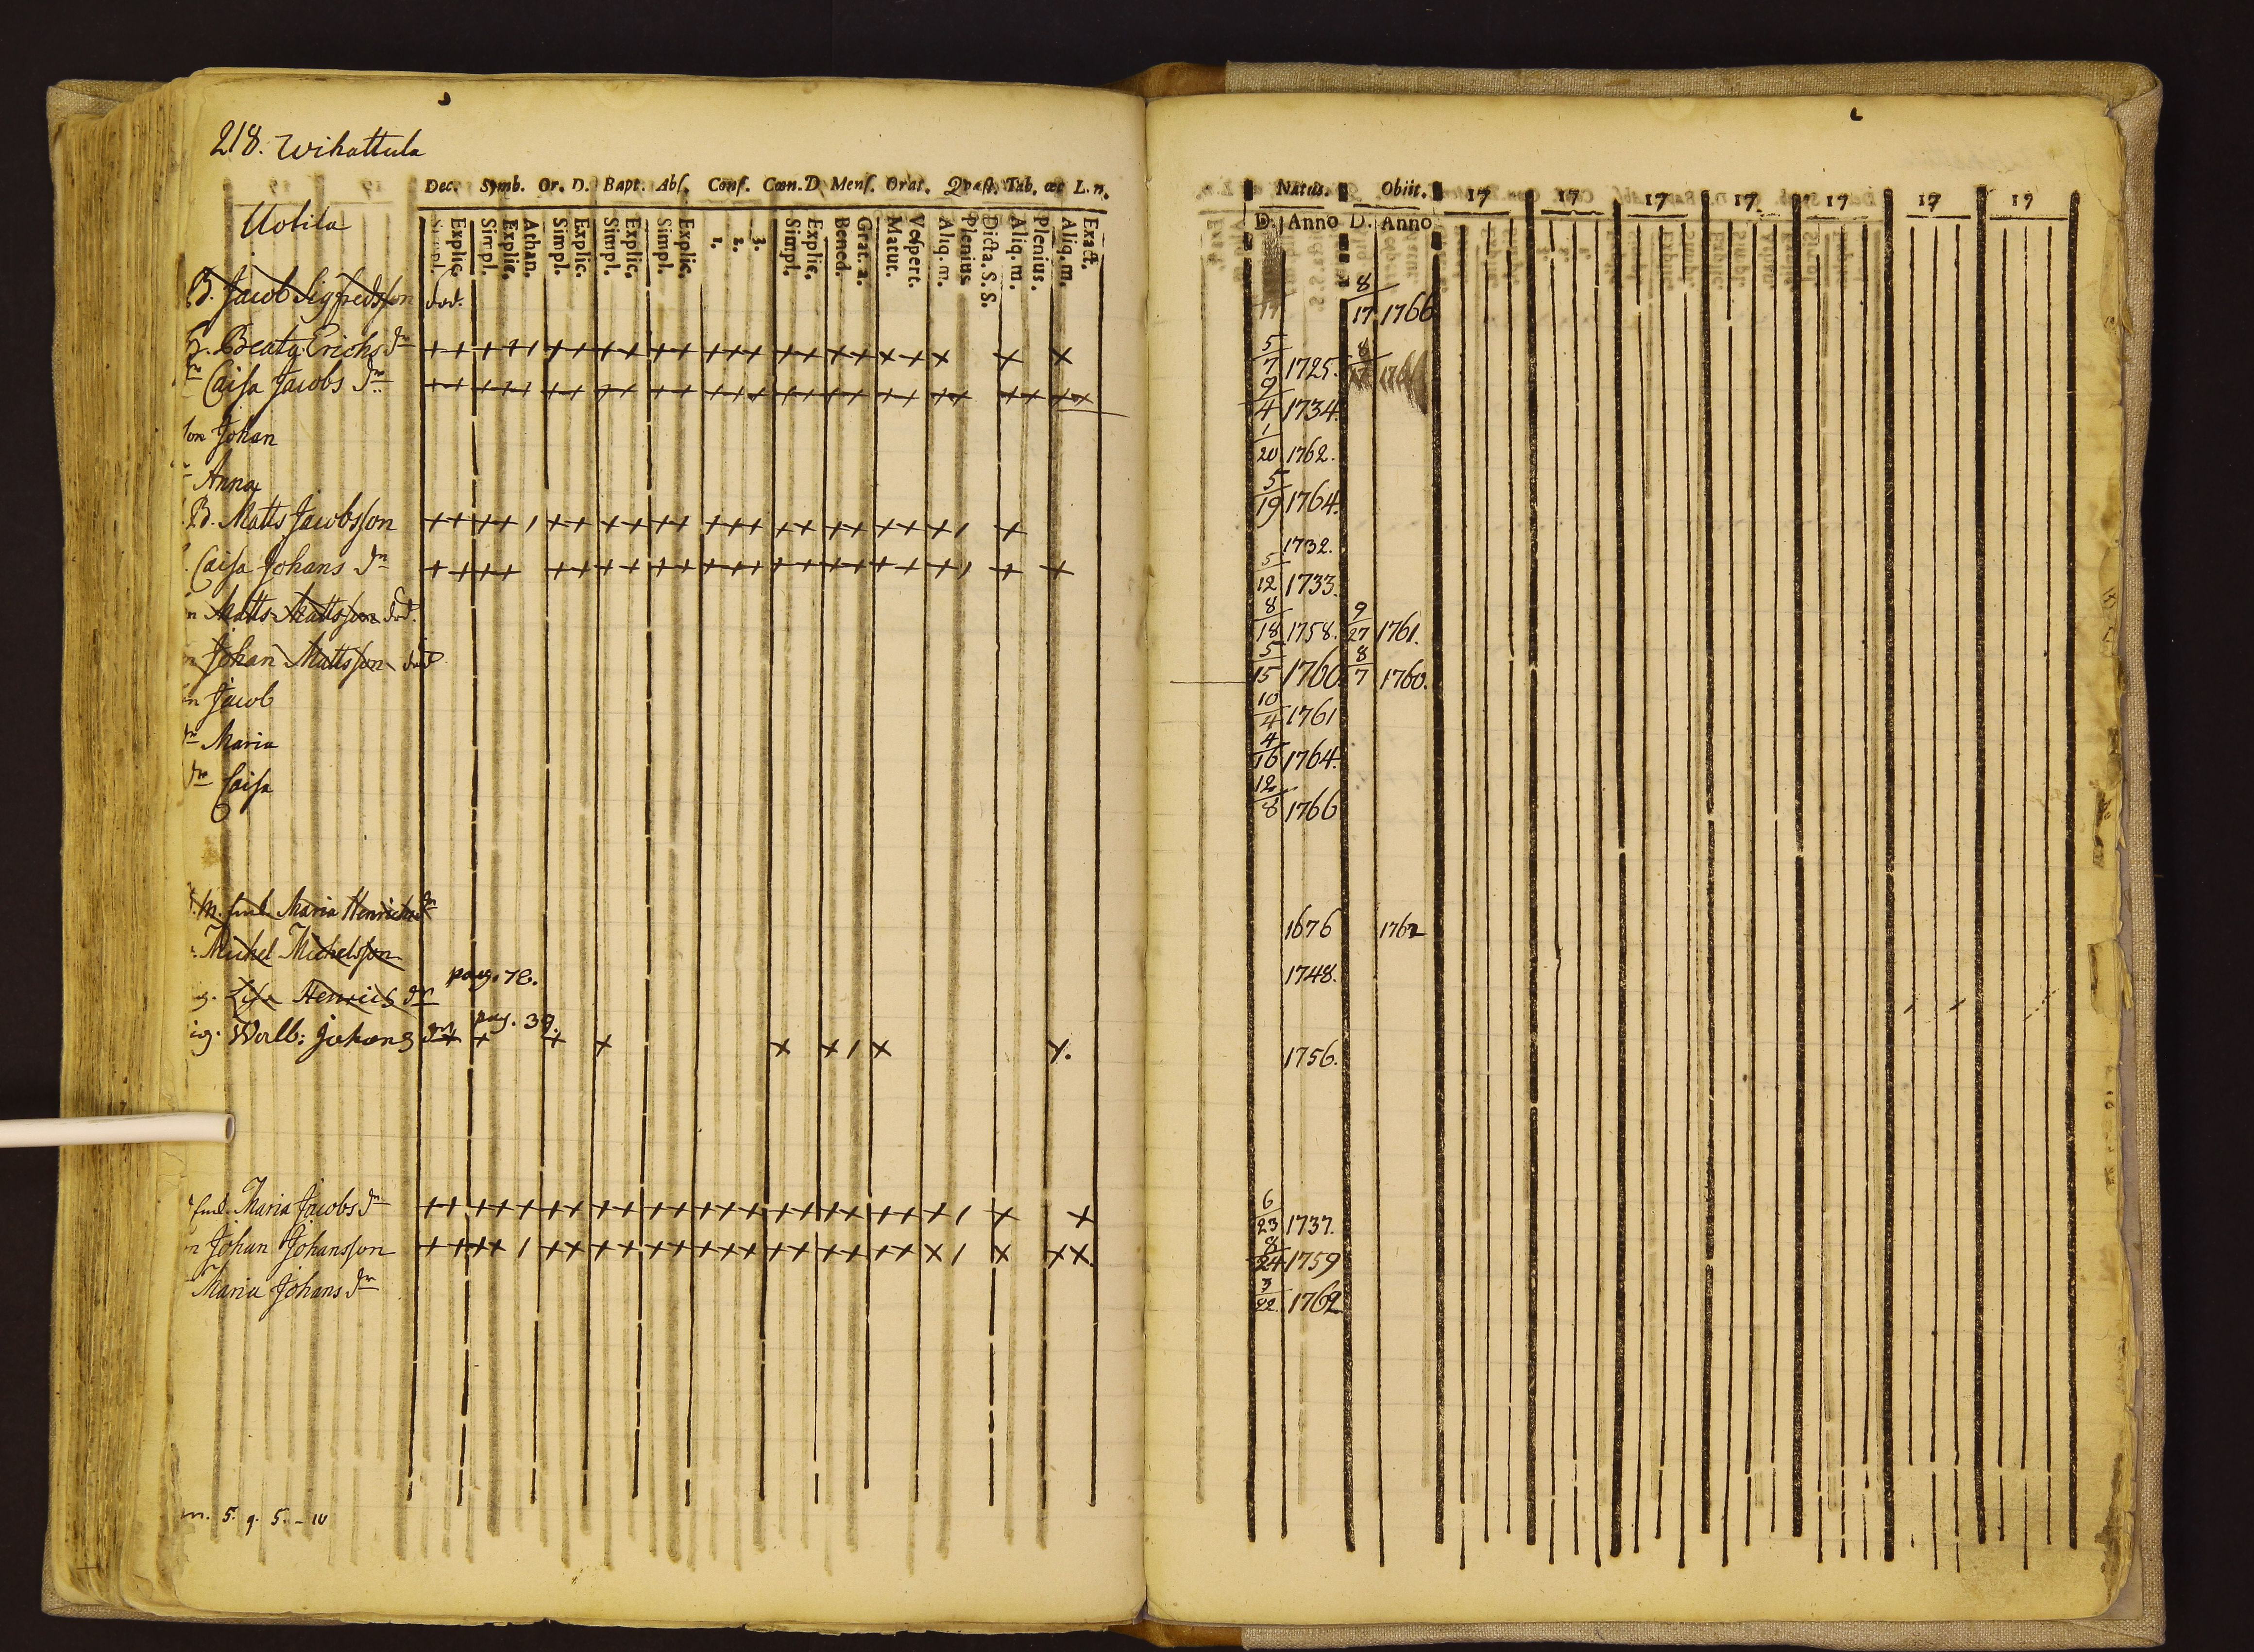 218. Wihattula
Dec. Symb. Or. D. Bapt. Abſ. Conf. Cœn. D. Menſ. Orat. Qvæſt. Tab. œc L. n.
Uotila
Simpl. Explic. Simpl. Explic. Athan. Simpl. Explic. Simpl. Explic. Simpl. Explic. 1. 2. 3. Simpl. Explic. Bened. Grat. a. Matut. Veſpert. Aliq. m. Plenius Dicta. S. S. Aliq. m. Plenius. Aliq. m. Exact.
B. Jacob Sigfredsson död.
H. Beata Erichs dr
dr Caisa Jacobs dr
son Johan
Anna
B. Matts Jacobsson
Caisa Johans dr
Matts Mattsson död.
Johan Mattsson död
Jacob
dr Maria
dr Caisa
M. Maria Henrichs dr
Michel Michelsson
Lisa Henrics dr pag. 78.
pag. 39.
Walb: Johans dr
Enk. Maria Jacobs dr
Johan Johansson
Maria Johans dr
m. 5. q. 5. - 10
Natus. Obiit. 17 17 17 17 17 17 17
D. Anno D. Anno
8/17 1766
5/7 1725. 8/17
9/4 1734.
1/20 1762.
5/19 1764.
1732.
5/12 1733.
8/18 1758. 9/27 1761.
5/15 1760 8/7 1760.
10/4 1761
4/16 1764.
12/8 1766
1676 1762
1748.
1756.
6/23 1737.
8/24 1759
3/22 1762